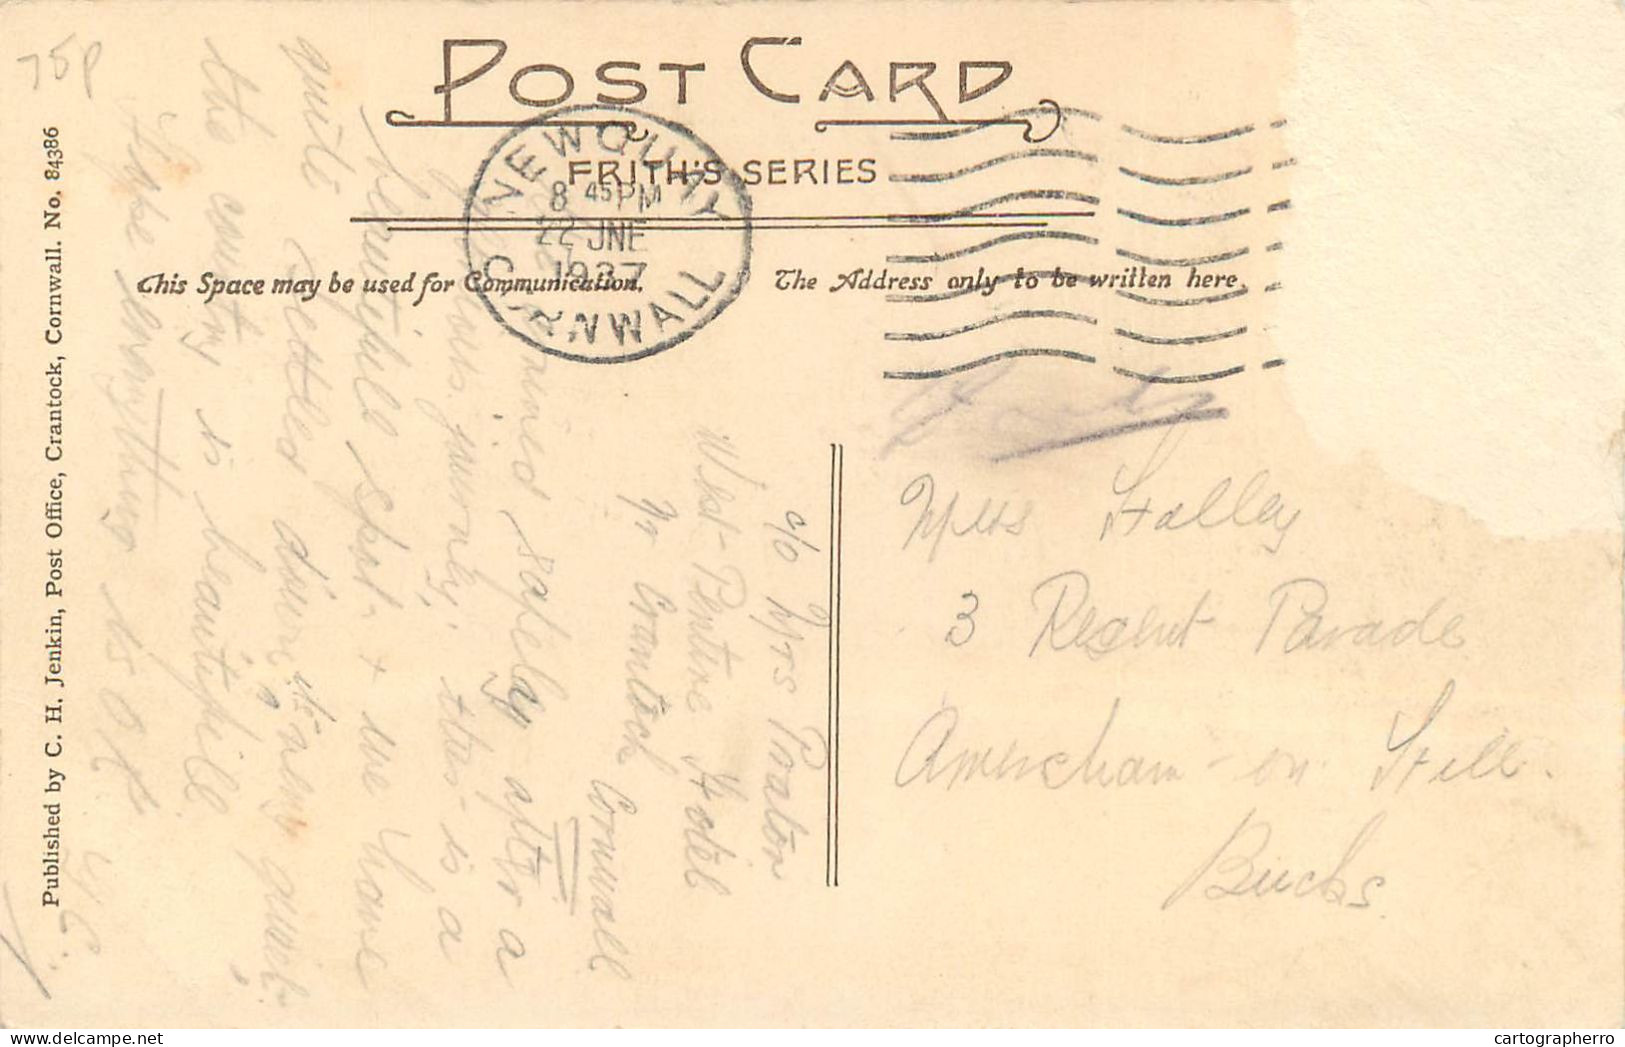 75p
POST CARD
FRITH'S SERIES
NEWQUAY
8 45 PM
22 JNE
1937
CORNWALL
This Space may be used for Communication.
The Address only to be written here.
Published by C. H. Jenkin, Post Office, Crantock, Cornwall. No. 84386
c/o Mrs Proator
West-Pentire Hotel
Nr Crantock Cornwall
safely after a
journey, this is a
beautiful spot & we have
quite settled down, it's very quiet
the country is beautiful
hope everything is O.K.
Miss Stalley
3 Regent Parade
Amersham-on-Hill.
Bucks.
cartographerro